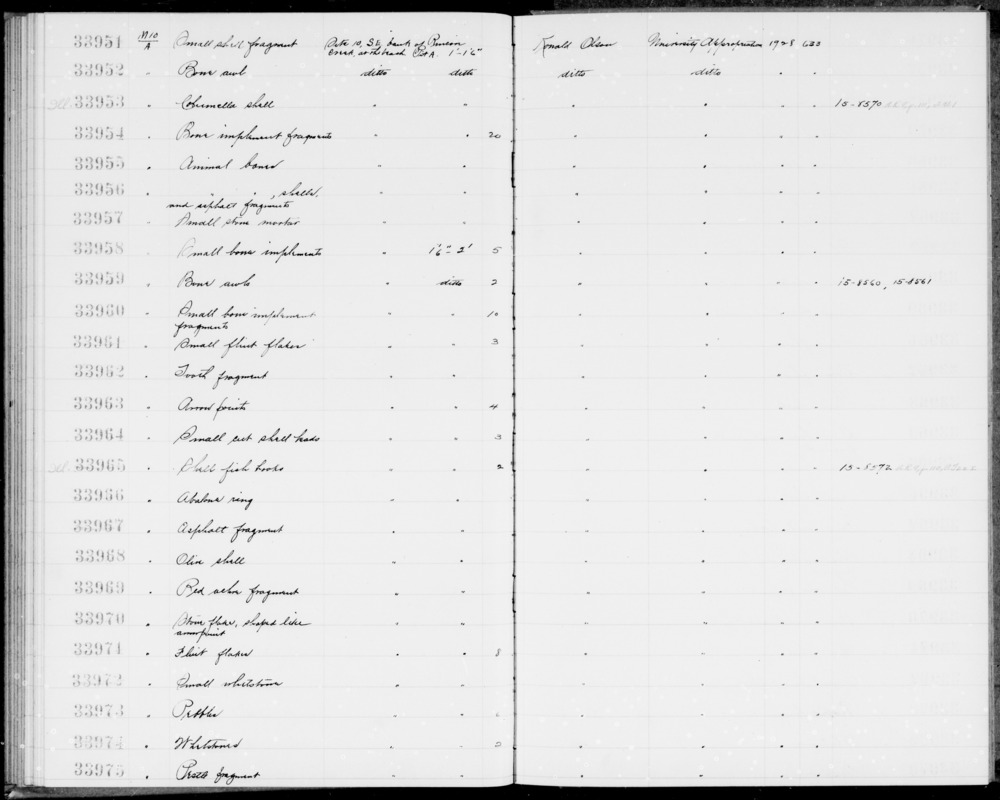 33951 M10/A Small shell fragment Site 10, SE, bank of Rincon Ronald Olson University Appropriation 1928 633
Creek at the beach Pit A. 1'-1'6"
33952 " Bone awl ditto ditto ditto ditto " "
33953 " Columella shell " " " " " " 15-8570
33954 " Bone implement fragments " " 20 " " " "
33955 " Animal bones " " " " " "
33956 " " " , shells, " " " " " "
and asphalt fragments
33957 " Small stone mortar " " " " " "
33958 " Small bone implements " 1'6"-2' 5 " " " "
33959 " Bone awls " ditto 2 " " " " 15-8560, 15-8561
33960 " Small bone implement " " 10 " " " "
fragments
33961 " Small flint flakes " " 3 " " " "
33962 " Tooth fragment " " " " " "
33963 " Arrow points " " 4 " " " "
33964 " Small cut shell beads " " 3 " " " "
33965 " Shell fish hooks " " 2 " " " " 15-8572
33966 " Abalone ring " " " " " "
33967 " Asphalt fragment " " " " " "
33968 " Olive shell " " " " " "
33969 " Red ochre fragment " " " " " "
33970 " Stone flake, shaped like " " " " " "
arrowpoint
33971 " Flint flakes " " 8 " " " "
33972 " Small whetstone " " " " " "
33973 " Pebbles " " " " " "
33974 " Whetstones " " 2 " " " "
33975 " Pestle fragment " " " " " "